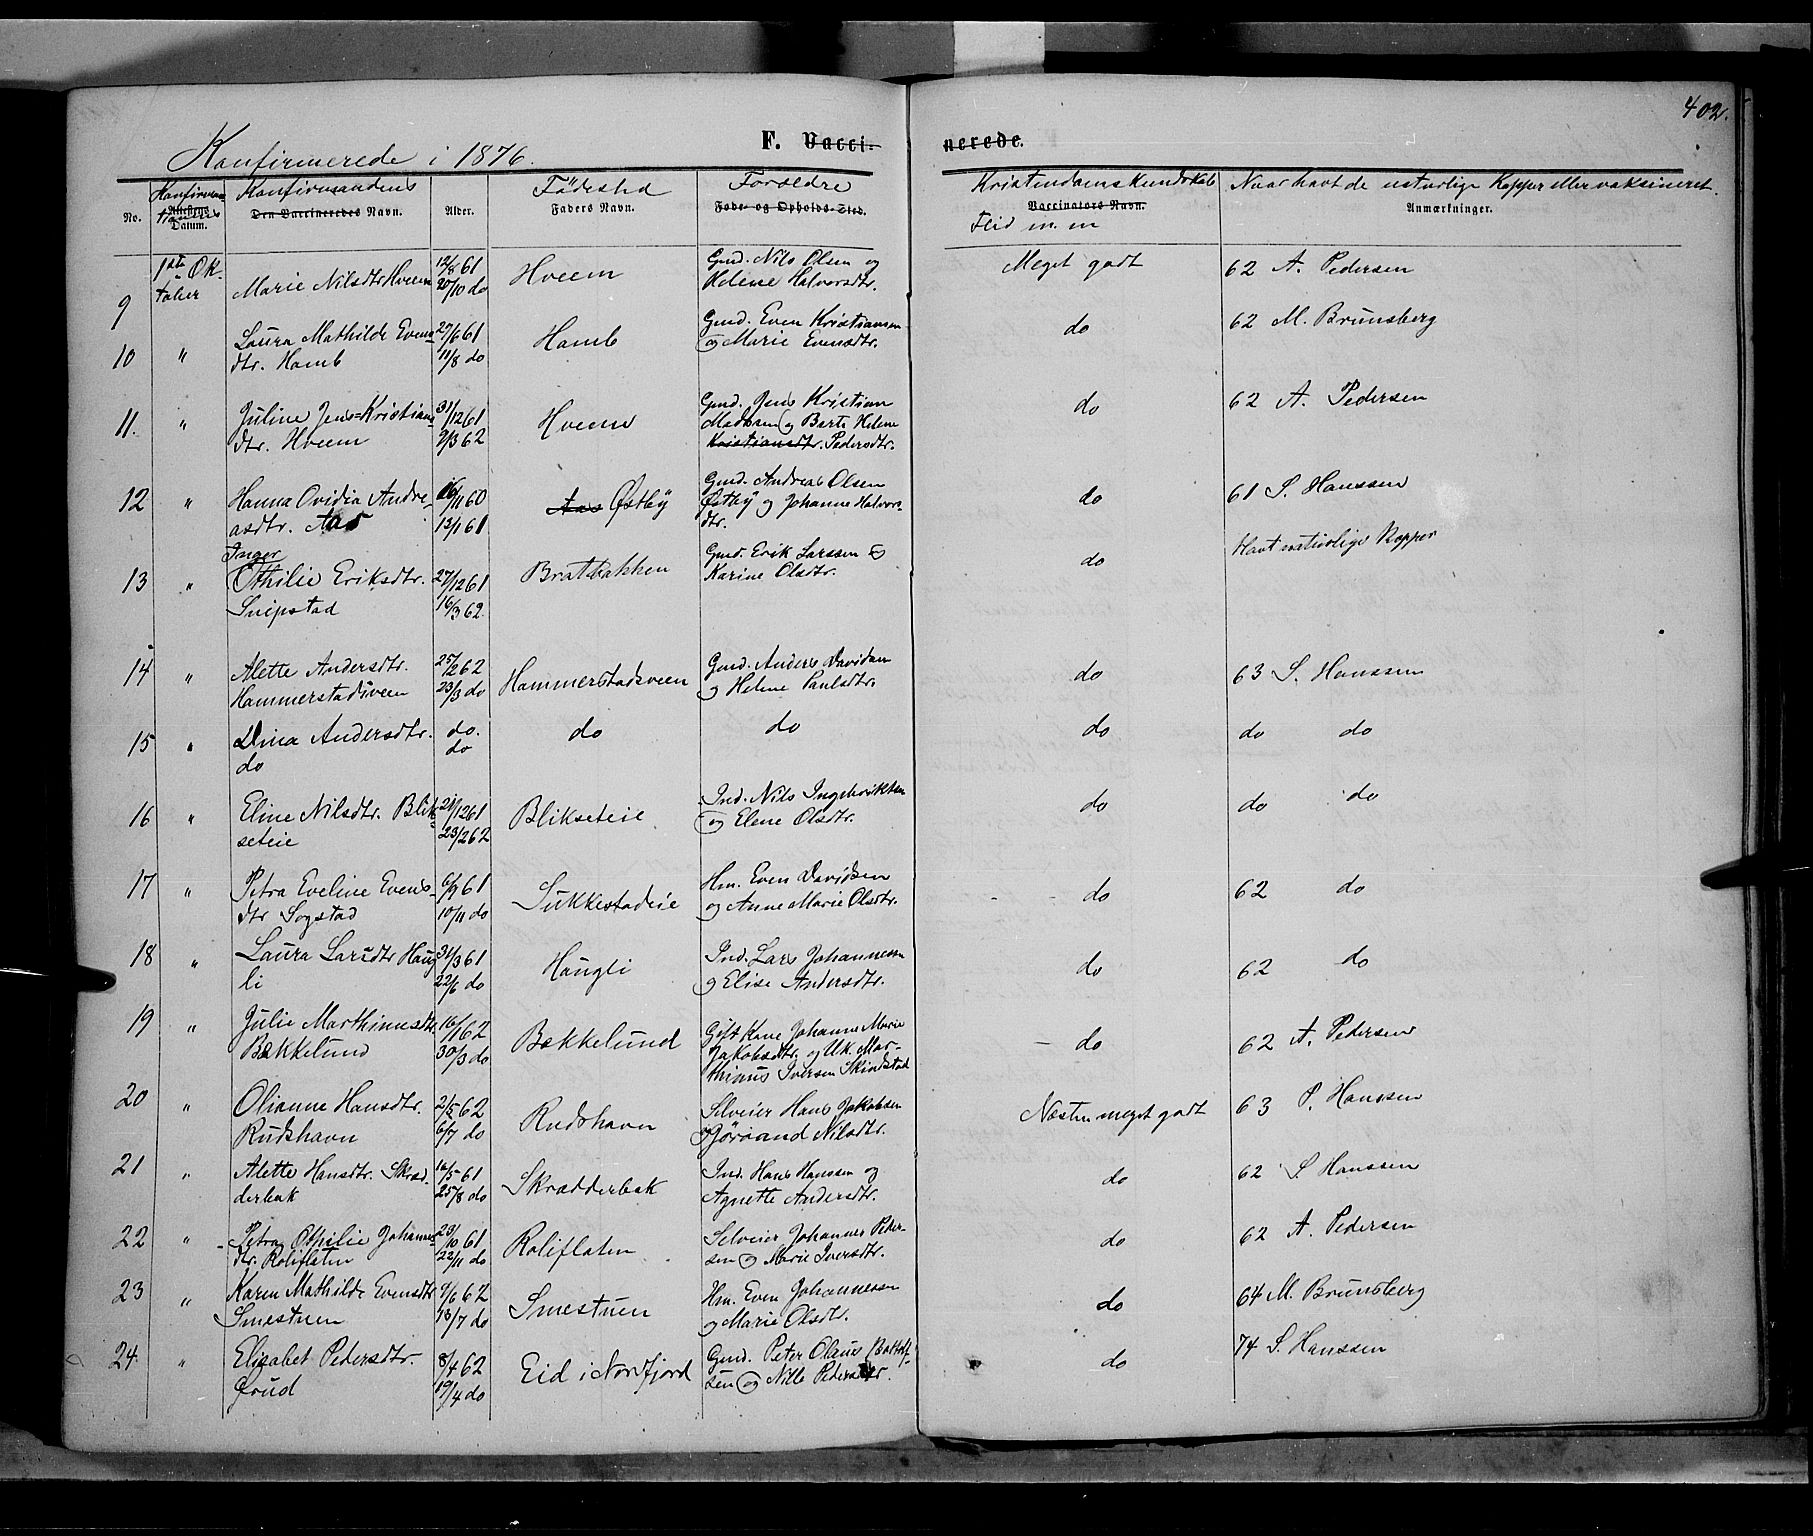 402.
Konfirmerede i 1876.
F. Vacci-
nerede.
No.
Konfirma-
tionens
Attestens
Datum.
Konfirmandens
Den Vaccineredes Navn.
Alder.
Födested
Faders Navn.
Forældre
Føde- og Opholds-Sted.
Kristendomskundskab
Vaccinators Navn.
Flid m. m
Naar havt de naturlige Kopper eller vaksineret.
Anmærkninger.
9
1ste Ok-
tober
Marie Nilsdtr Hveem
12/8 61
20/10 do
Hveem
Gmd. Nils Olsen og
Helene Halvorsdtr.
Meget godt
62 A. Pedersen
10
"
Laura Mathilde Evens-
dtr. Homb
27/6 61
11/8 do
Homb
Gmd. Even Kristiansen
og Marie Evensdtr.
do
62 M. Brunsberg
11.
"
Juline Jens=Kristians
dtr. Hveem
31/12 61
9/3 62
Hveem
Gmd. Jens Kristian
Madssen og Berte Helene
Kristiansdtr. Pedersdtr.
do
62 A. Pedersen
12
"
Hanna Ovidia Andre-
asdtr. Aas
16/11 60
13/1 61
Aas Østby
Gmd. Andreas Olsen
Østby og Johanne Halvors-
dtr.
do
61 S. Hanssen
13
"
Inger
Othilie Eriksdtr.
Snipstad
27/12 61
16/3 62.
Bratbakken
Gmd. Erik Larssen og
Karine Olsdtr.
do
Havt naturlige Kopper
14
"
Alette Andersdtr.
Hammerstadsveen
25/1 2 62
23/3 do
Hammerstadsveen
Gmd. Anders Davidsen
og Helene Paulsdtr.
do
63 S. Hanssen
15
"
Dina Andersdtr.
do
do.
do
do
do
do
do do
16
"
Eline Nilsdtr. Blik-
seteie
21/12 61
23/2 62
Blikseteie
Ind. Nils Ingebriktsen
og Elene Olsdtr.
do
do do
17
"
Petra Eveline Evens-
dtr Sogstad
6/9 61
10/11 do
Sukkestadeie
Hm. Even Davidsen
og Anne Marie Olsdtr.
do
62 do
18
"
Laura Larsdtr Haug-
li
31/3 61
22/6 do
Haugli
Ind. Lars Johannesen
og Elise Andersdtr.
do
62 do
19
"
Julie Marthinusdtr
Bækkelund
16/1 62
30/3 do
Bækkelund
Gift Kone Johanne Marie
Jakobsdtr. og Uk. Mar-
thinus Iversen Skindstad
do
62 A. Pedersen
20
"
Olianne Hansdtr.
Rudshavn
2/5 62
6/7 do
Rudshavn
Selveier Hans Jakobsen
og Jørand Nilsdtr.
Næsten meget godt
63 S. Hanssen
21
"
Alette Hansdtr. Skræd-
derbak
16/5 61
25/8 do
Skrædderbak
Ind. Hans Hanssen og
Agnette Andersdtr.
do
62 S. Hanssen
22
"
Petra Othilie Johannes-
dtr. Roliflaten
23/10 61
22/11 do
Roliflaten
Selveier Johannes Peder-
sen og Marie Iversdtr.
do
62 A. Pedersen
23
"
Karen Mathilde Evensdtr
Smestuen
9/6 62
13/7 do
Smestuen
Hm. Even Johannesen
og Marie Olsdtr.
do
64 M. Brunsberg
24
"
Elisabet Pedersdtr.
Ørud
8/4 62
19/4 do
Eid i Nordfjord
Gmd. Peter Olaus Bottolf-
sen og Nille Pedersdtr.
do
74 S. Hanssen